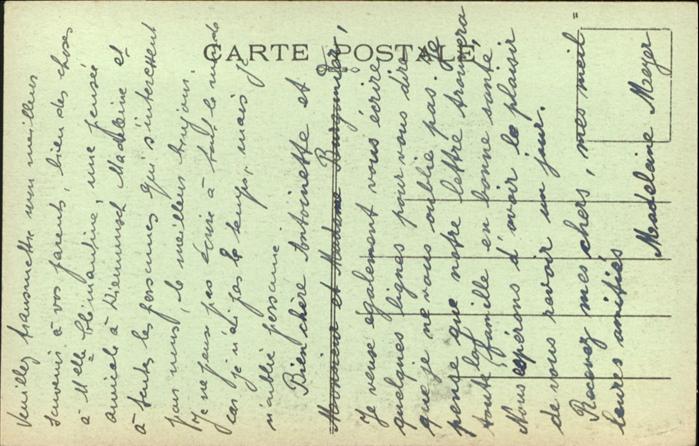 CARTE POSTALE
Veuillez transmettre mon meilleur
souvenir à vos parents, bien des choses
à Melle Clémantine, une pensée
amicale à Madeleine et
à toutes les personnes qui s'intéressent
pour nous, le meilleur bonjour.
Je ne peux pas écrire à tout le monde
car je n'ai pas le temps, mais je
n'oublie personne
Bien chère Antoinette et
Monsieur et Madame
Je veux également vous écrire
quelques lignes pour vous dire
que je ne vous oublie pas. Je
pense que notre lettre trouvera
toute la famille en bonne santé.
Nous espérons d'avoir le plaisir
de vous revoir un jour.
Recevez mes chers, mes meil=
leures amitiés
Madelaine Meyer